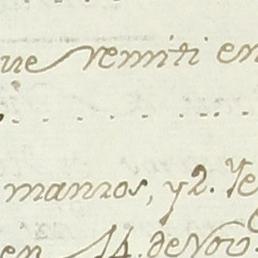 que remiti en
manzos, y 2. Ye
en 14. de Nov.o